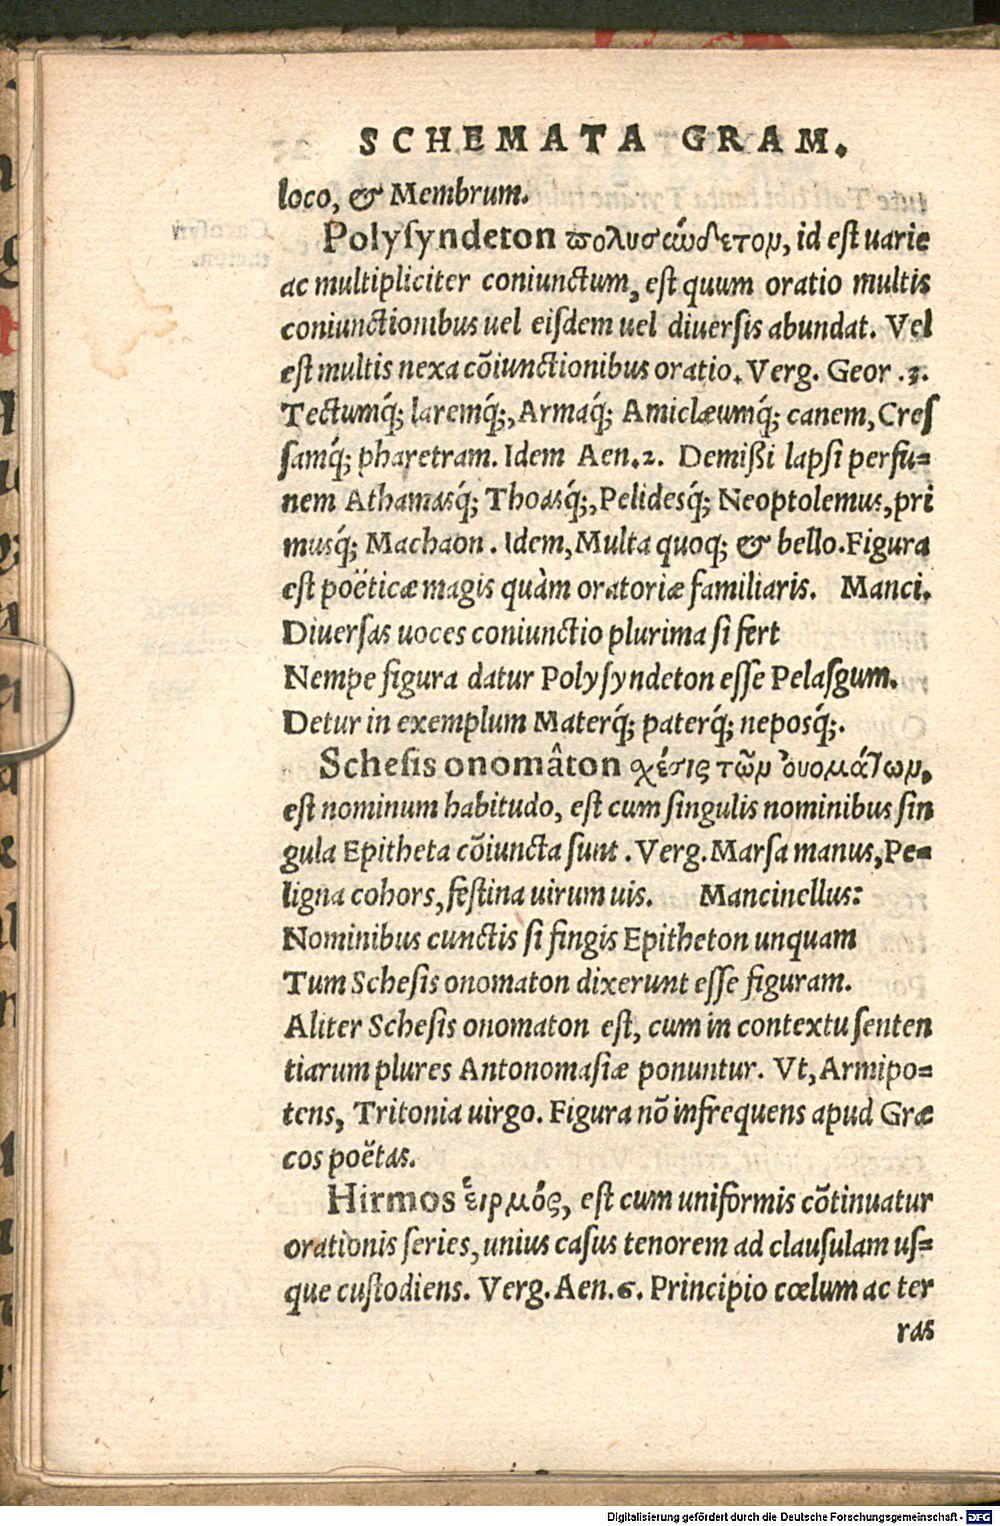 SCHEMATA GRAM.
loco, & Membrum.
Polysyndeton πολυσύνδετον, id est uarie
ac multipliciter coniunctum, est quum oratio multis
coniunctionibus uel eiſdem uel diuerſis abundat. Vel
est multis nexa cõiunctionibus oratio. Verg. Geor .3.
Tectumq́; laremq́;, Armaq́; Amiclæumq́; canem, Creſ
ſamq́; pharetram. Idem Aen.2. Demißi lapſi per fu=
nem Athamasq́; Thoasq́;, Pelidesq́; Neoptolemus, pri
musq́; Machaon. Idem, Multa quoq; & bello. Figura
est poëticæ magis quàm oratoriæ familiaris. Manci.
Diuerſas uoces coniunctio plurima ſi fert
Nempe figura datur Polyſyndeton eſſe Pelaſgum.
Detur in exemplum Materq́; paterq́; neposq́;.
Scheſis onomâton χέσις τῶν ὀνομάτων,
eſt nominum habitudo, eſt cum ſingulis nominibus ſin
gula Epitheta cõiuncta ſunt. Verg. Marſa manus, Pe=
ligna cohors, feſtina uirum uis. Mancinellus:
Nominibus cunctis ſi fingis Epitheton unquam
Tum Scheſis onomaton dixerunt eſſe figuram.
Aliter Scheſis onomaton eſt, cum in contextu ſenten
tiarum plures Antonomaſiæ ponuntur. Vt, Armipo=
tens, Tritonia uirgo. Figura nõ infrequens apud Græ
cos poëtas.
Hirmos εἱρμός, eſt cum uniformis cõtinuatur
orationis ſeries, unius caſus tenorem ad clauſulam uſ=
que cuſtodiens. Verg. Aen.6. Principio cœlum ac ter
ras
Digitalisierung gefördert durch die Deutsche Forschungsgemeinschaft - DFG